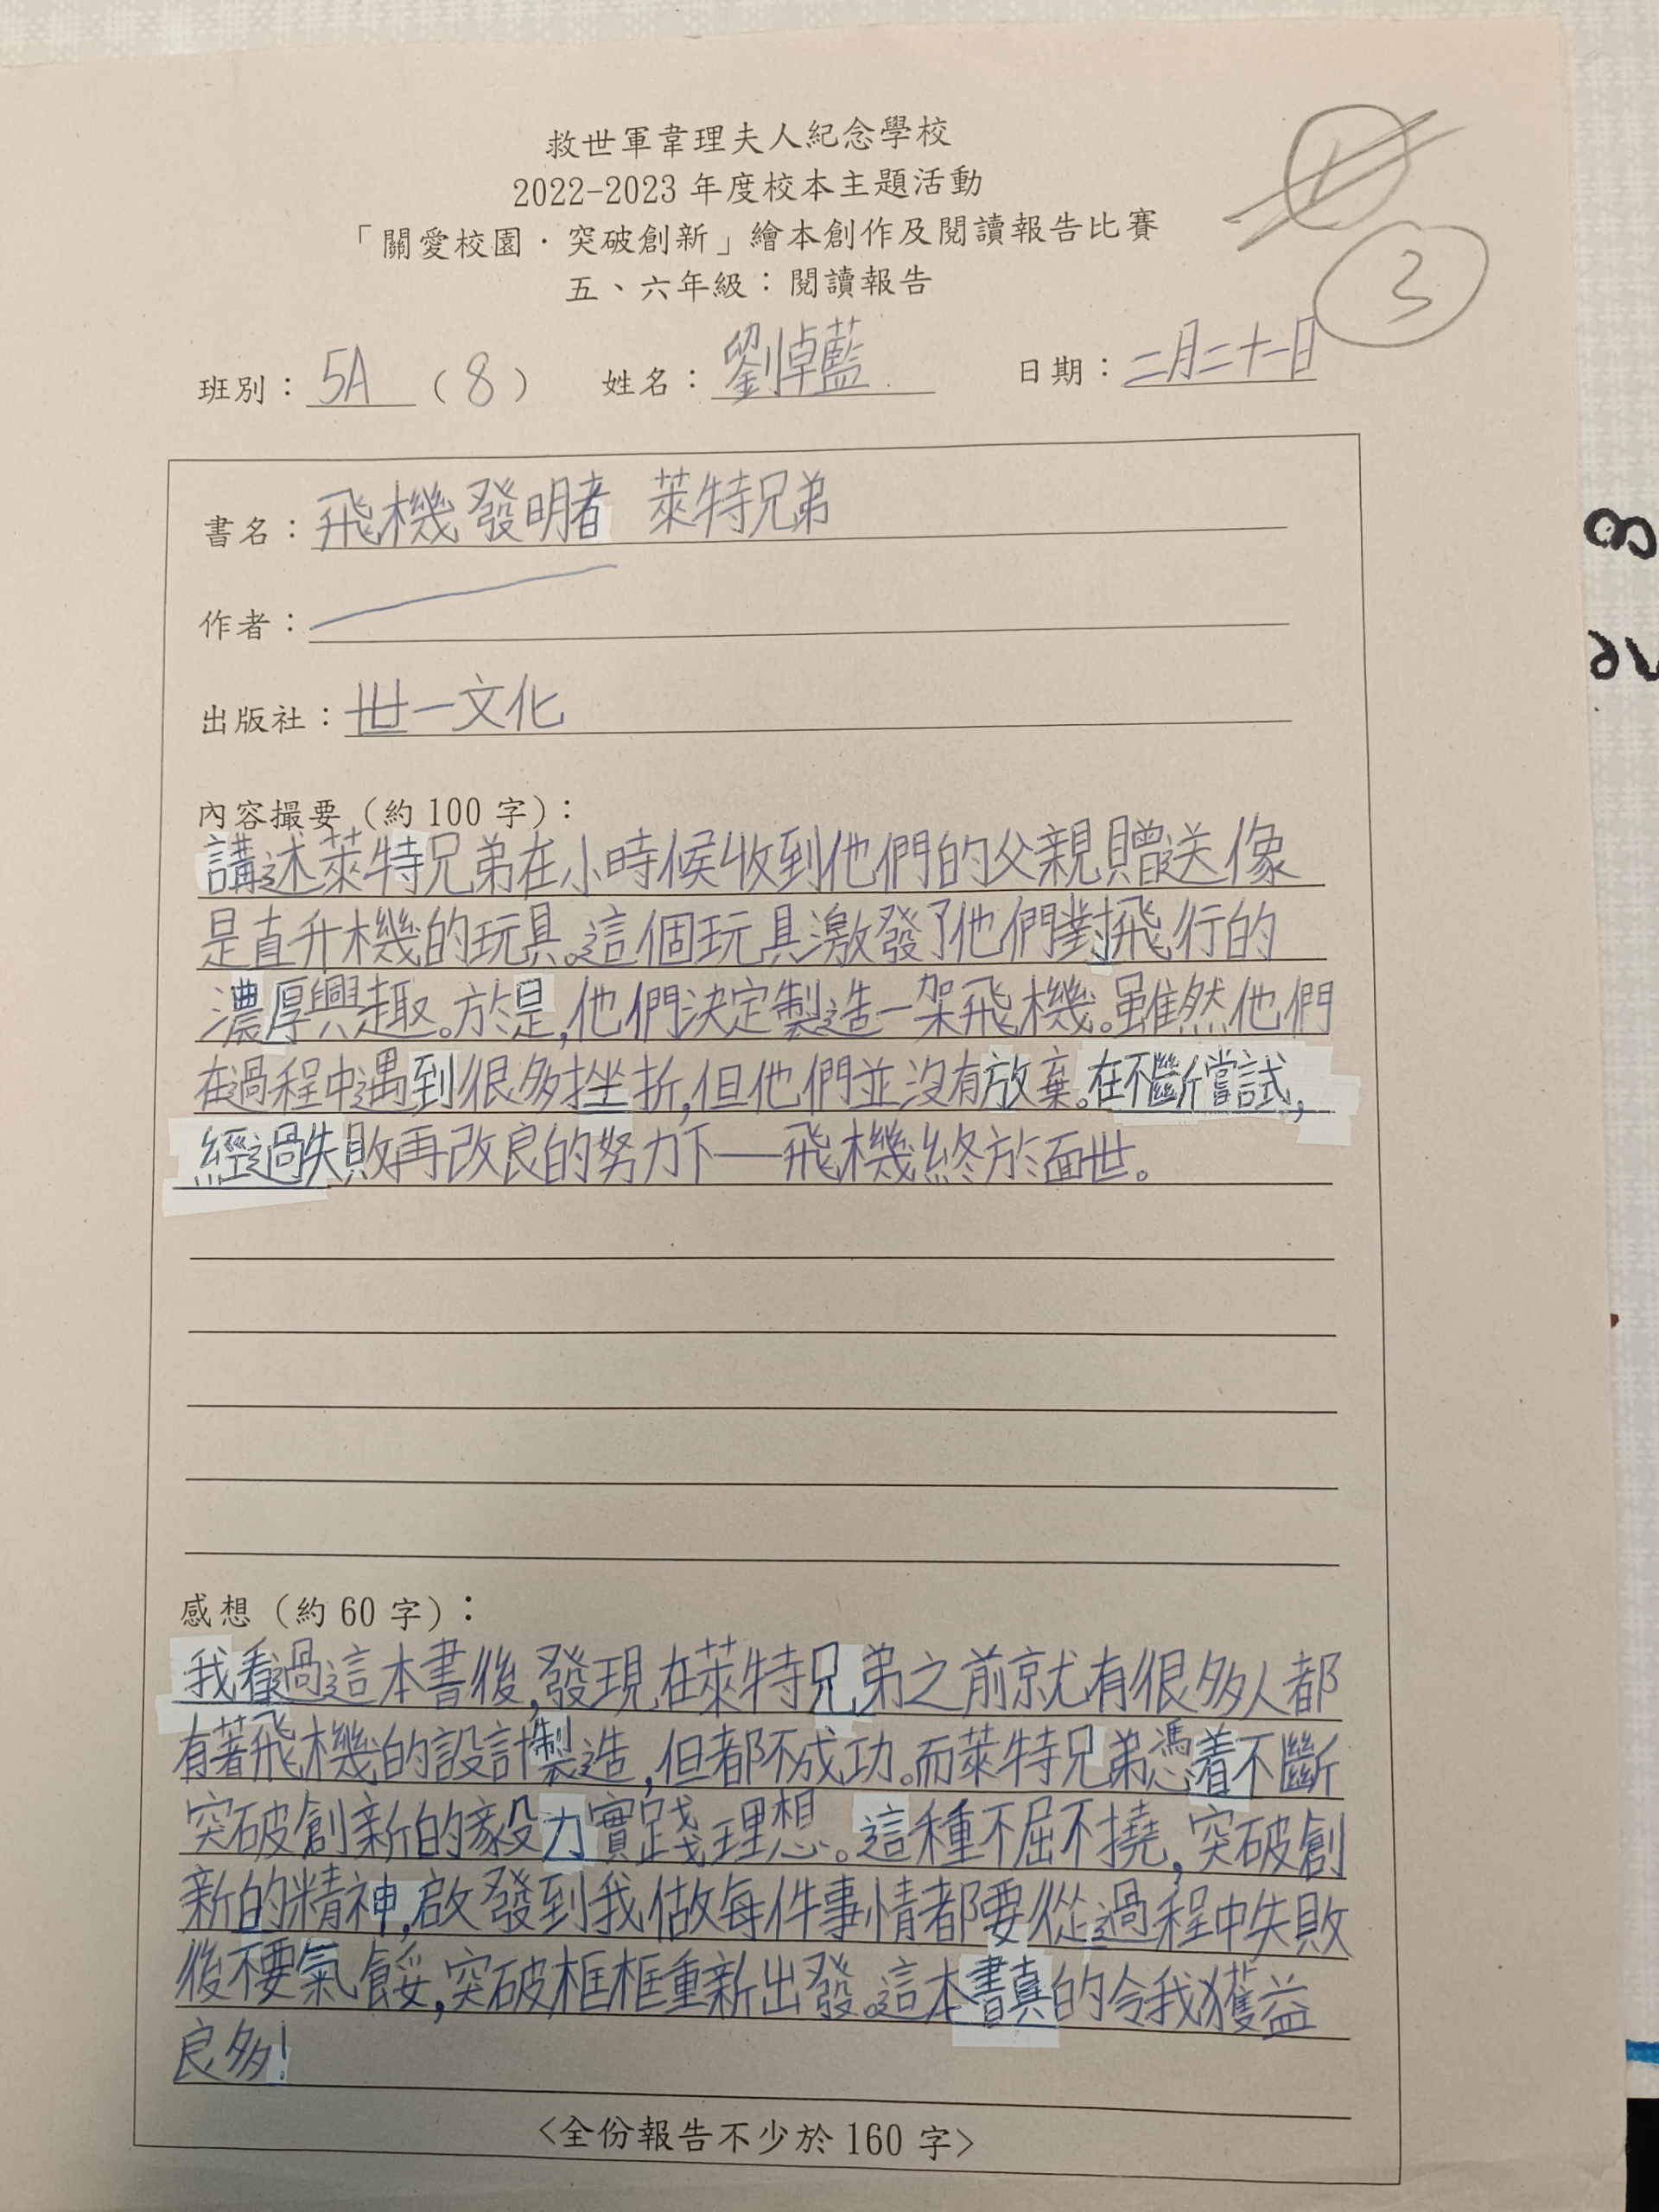 救世軍韋理夫人紀念學校
2022-2023 年度校本主題活動
「關愛校園．突破創新」繪本創作及閱讀報告比賽
五、六年級：閱讀報告
3
班別：5A（8） 姓名：劉倬藍 日期：二月二十一日
書名：飛機發明者 萊特兄弟
作者：
出版社：世一文化
內容撮要（約 100 字）：
講述萊特兄弟在小時候收到他們的父親贈送像
是直升機的玩具。這個玩具激發了他們對飛行的
濃厚興趣。於是,他們決定製造一架飛機。雖然他們
在過程中遇到很多挫折,但他們並沒有放棄。在不斷嘗試,
經過失敗再改良的努力下——飛機終於面世。
感想（約 60 字）：
我看過這本書後,發現在萊特兄弟之前就有很多人都
有著飛機的設計製造,但都不成功。而萊特兄弟憑着不斷
突破創新的毅力實踐理想。這種不屈不撓,突破創
新的精神,啟發到我做每件事情都要從過程中失敗
後不要氣餒,突破框框重新出發。這本書真的令我獲益
良多!
<全份報告不少於 160 字>